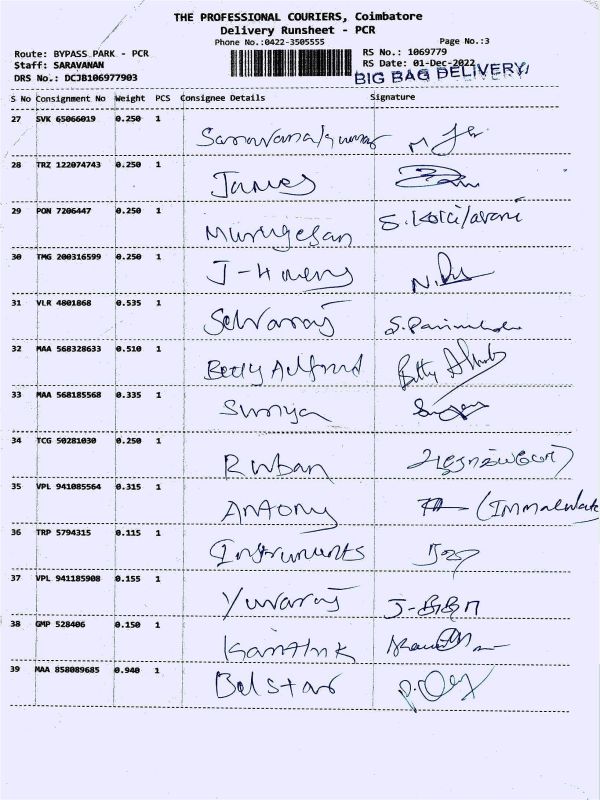 THE PROFESSIONAL COURIERS, Coimbatore
Delivery Runsheet - PCR
Phone No.:0422-3505555
Page No.:3
Route: BYPASS PARK - PCR
RS No.: 1069779
Staff: SARAVANAN
RS Date: 01-Dec-2022
DRS No.: DCJB106977903
BIG BAG DELIVERY
S No Consignment No Weight PCS Consignee Details Signature
27 SVK 65066019 0.250 1
28 TRZ 122074743 0.250 1 James
29 PON 7206447 0.250 1 Murugesan
30 TMG 200316599 0.250 1
31 VLR 4801868 0.535 1 Selvaraj
32 MAA 568328633 0.510 1 Betty
33 MAA 568185568 0.335 1 Suriya
34 TCG 50281030 0.250 1 Ruban
35 VPL 941085564 0.315 1 Antony
36 TRP 5794315 0.115 1 Instruments
37 VPL 941185908 0.155 1 Yuvaraj
38 GMP 528406 0.150 1 Karthik
39 MAA 858089685 0.940 1 Belstar